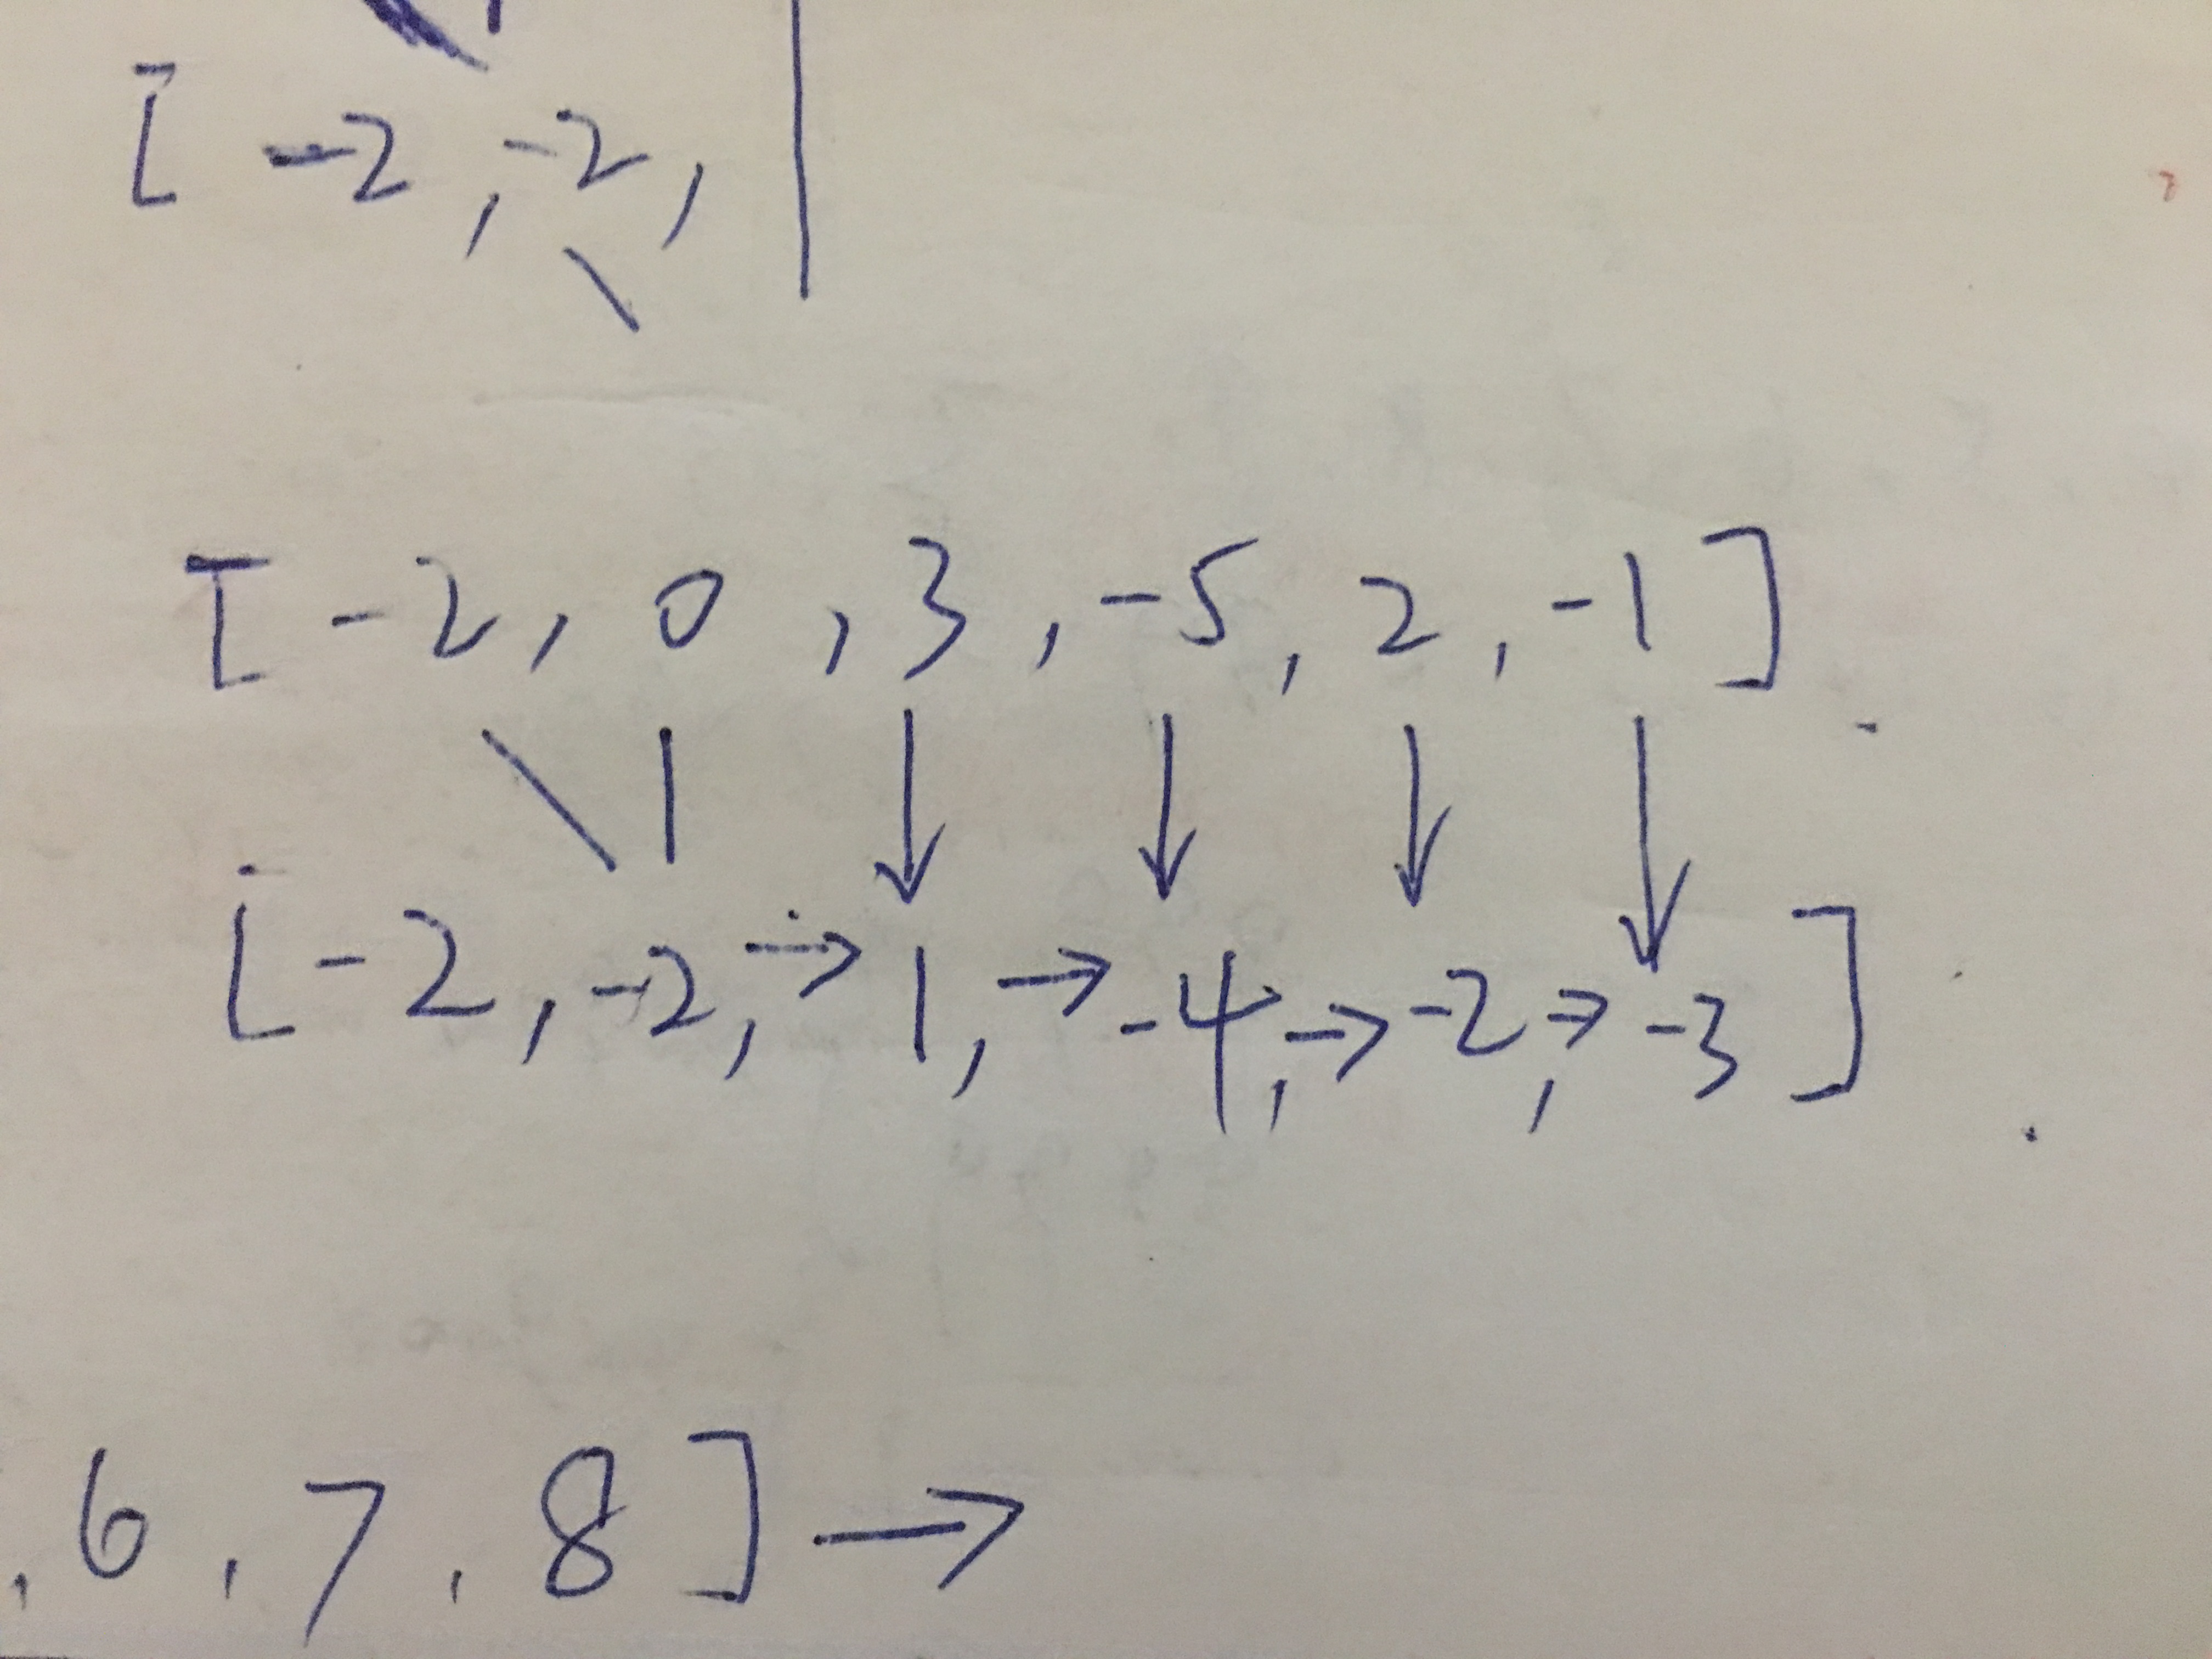 [ -2 , -2 ,
[ -2 , 0 , 3 , -5 , 2 , -1 ]
[ -2 , -2 , → 1 , → -4 , → -2 , → -3 ]
, 6 , 7 , 8 ] →